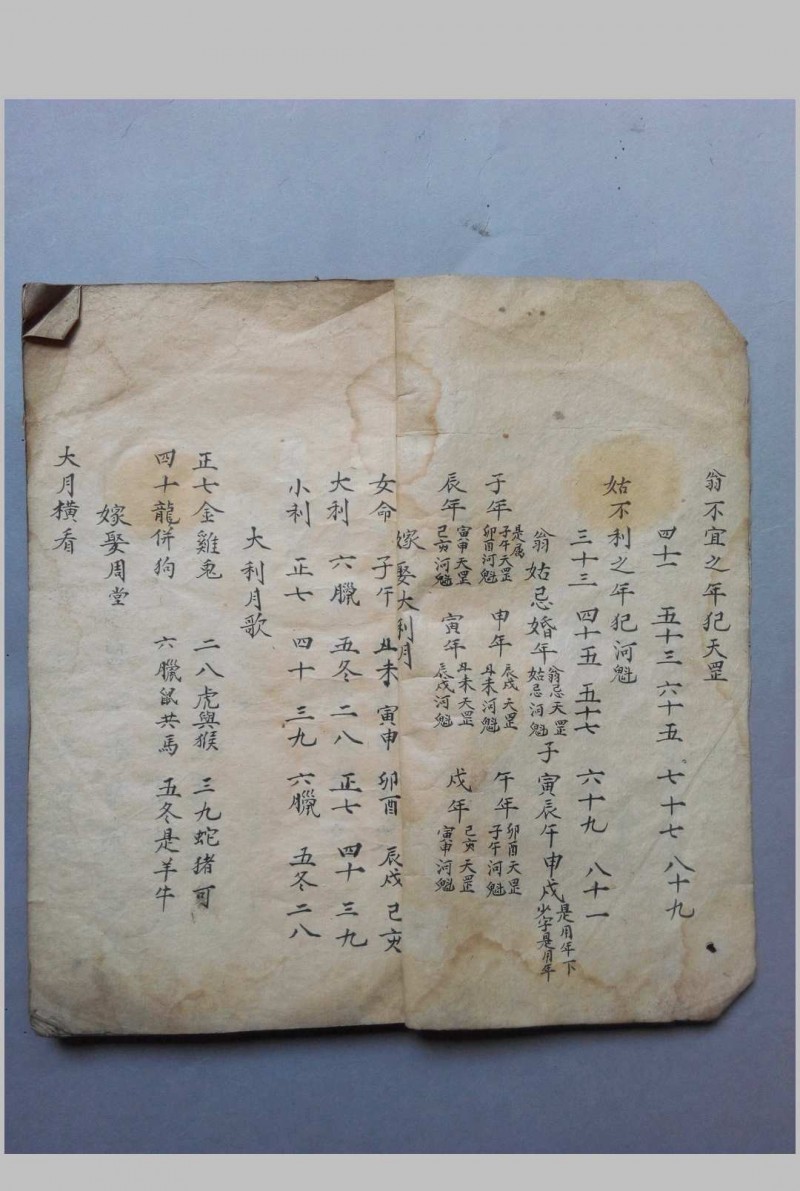 翁不宜之年犯天罡
四十一 五十三 六十五 七十七 八十九
姑不利之年犯河魁
三十三 四十五 五十七 六十九 八十一
翁姑忌婚年 翁忌天罡 姑忌河魁 子寅辰午申戌 是用年下 少字是用年
子年 是属子午天罡 卯酉河魁 申年 辰戌天罡 丑未河魁 午年 卯酉天罡 子午河魁
辰年 寅申天罡 己亥河魁 寅年 丑未天罡 辰戌河魁 戌年 己亥天罡 寅申河魁
嫁娶大利月
女命 子午 丑未 寅申 卯酉 辰戌 己亥
大利 六臘 五冬 二八 正七 四十 三九
小利 正七 四十 三九 六臘 五冬 二八
大利月歌
正七金雞兎 二八虎與猴 三九蛇猪可
四十龍併狗 六臘鼠共馬 五冬是羊牛
嫁娶周堂
大月横看